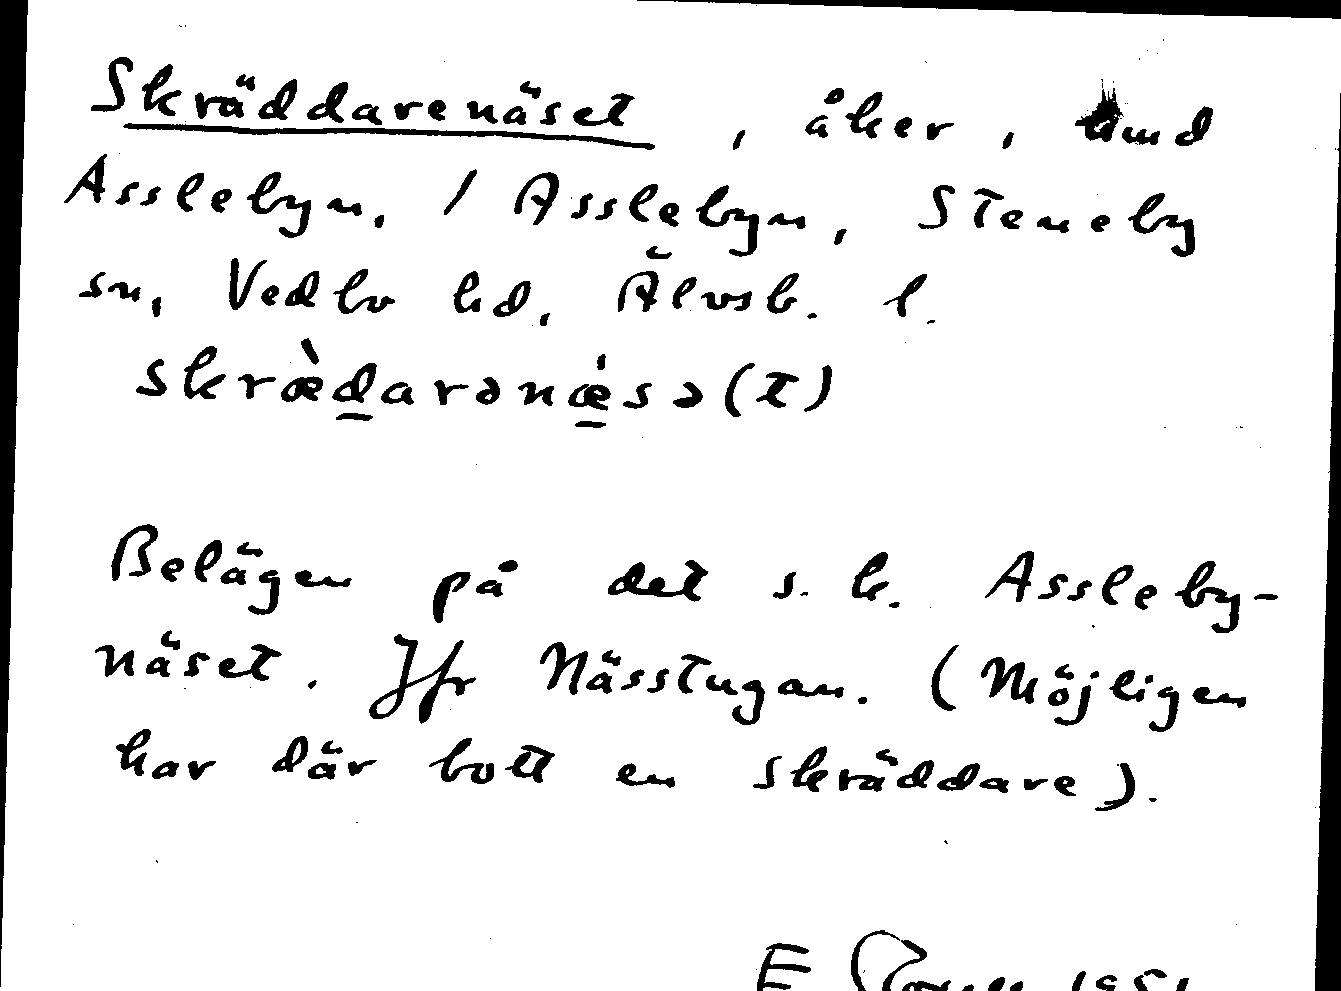 Skräddarenäset, åker, und
Asslebyn. / Asslebyn, Steneby
sn, Vedbo hd, Älvsb. l.
skræ̀d̲arənǽ̲sə(t)
Belägen på det s.k. Assleby-
näset. Jfr Nässtugan. (Möjligen
har där bott en skräddare).
E